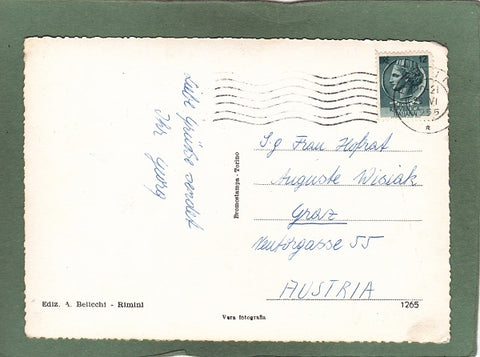 Liebe Grüße sendet
Ihr Georg
Bromostampa - Torino
12
21
VI
S.g. Frau Hofrat
Auguste Wisiak
Graz
Neutorgasse 55
AUSTRIA
Ediz. A. Bellechi - Rimini
Vera fotografia
1265